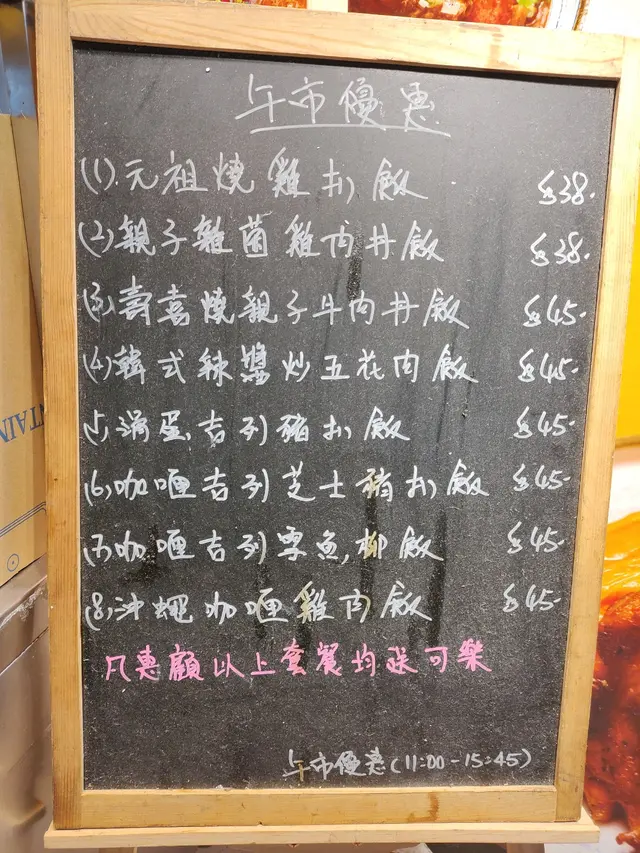 午市優惠
(1).元祖燒雞扒飯 $38.
(2)親子雜菌雞肉丼飯 $38.
(3).壽喜燒親子牛肉丼飯 $45.
(4)韓式辣醬炒五花肉飯 $45.
(5)滑蛋吉列豬扒飯 $45.
(6)咖喱吉列芝士豬扒飯 $45.
(7)咖喱吉列雪魚柳飯 $45.
(8)沖繩咖喱雞肉飯 $45.
凡惠顧以上套餐均送可樂
午市優惠(11:00-15:45)